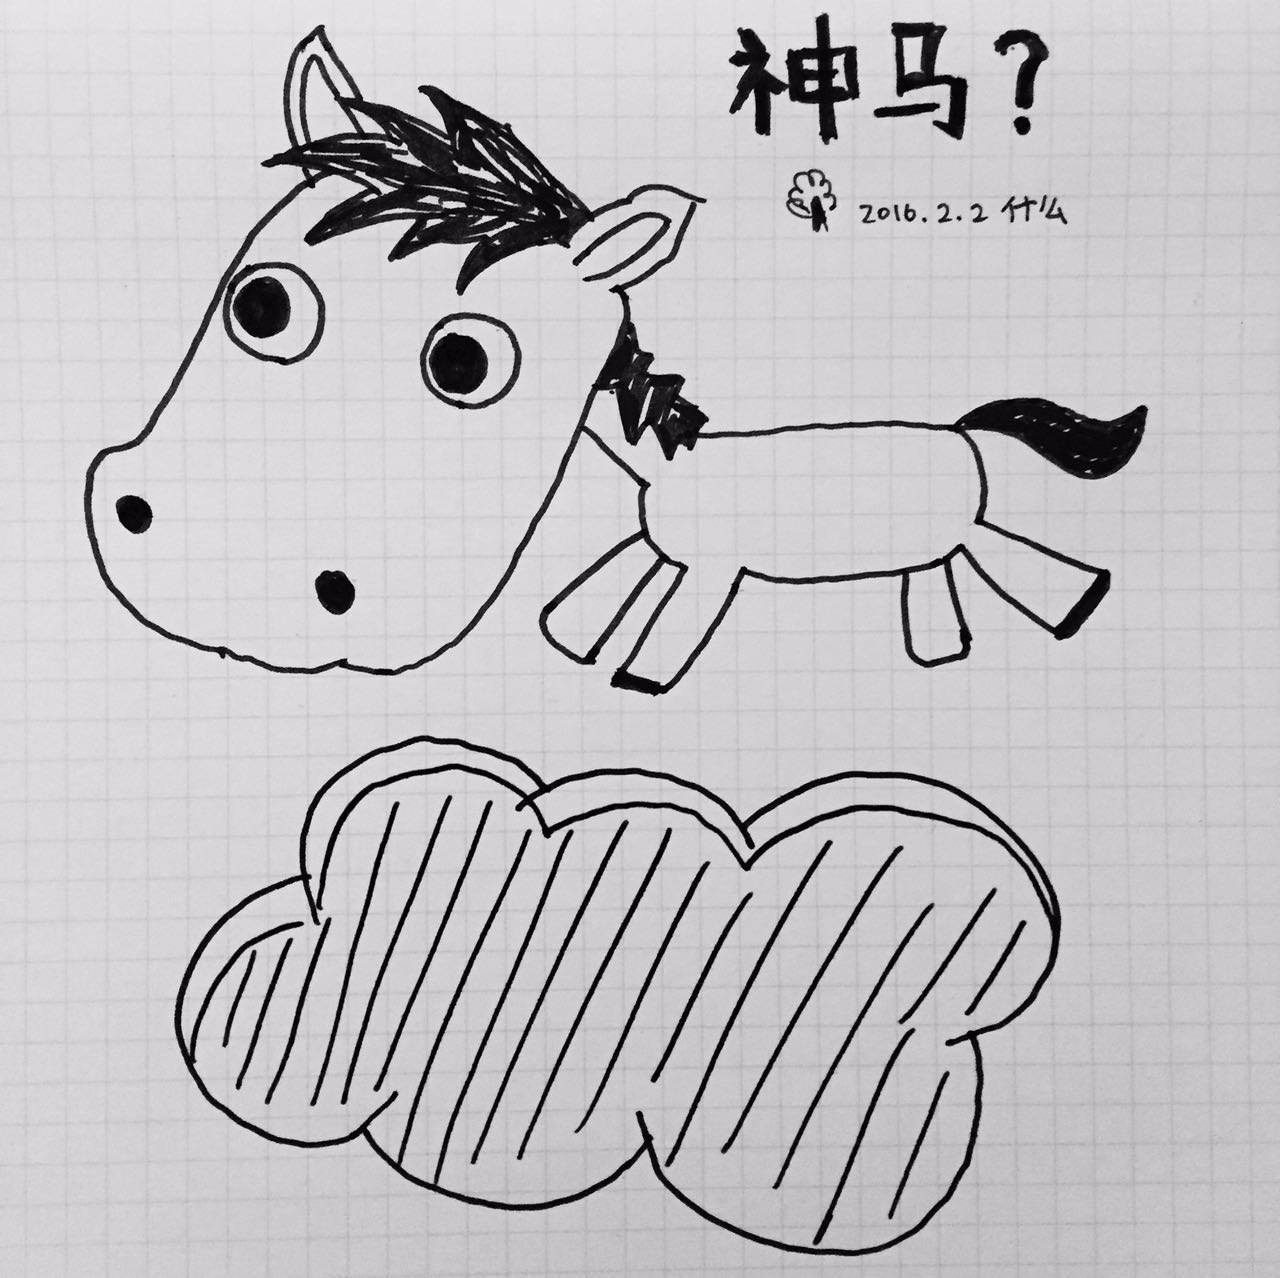 神马?
2016.2.2 什么